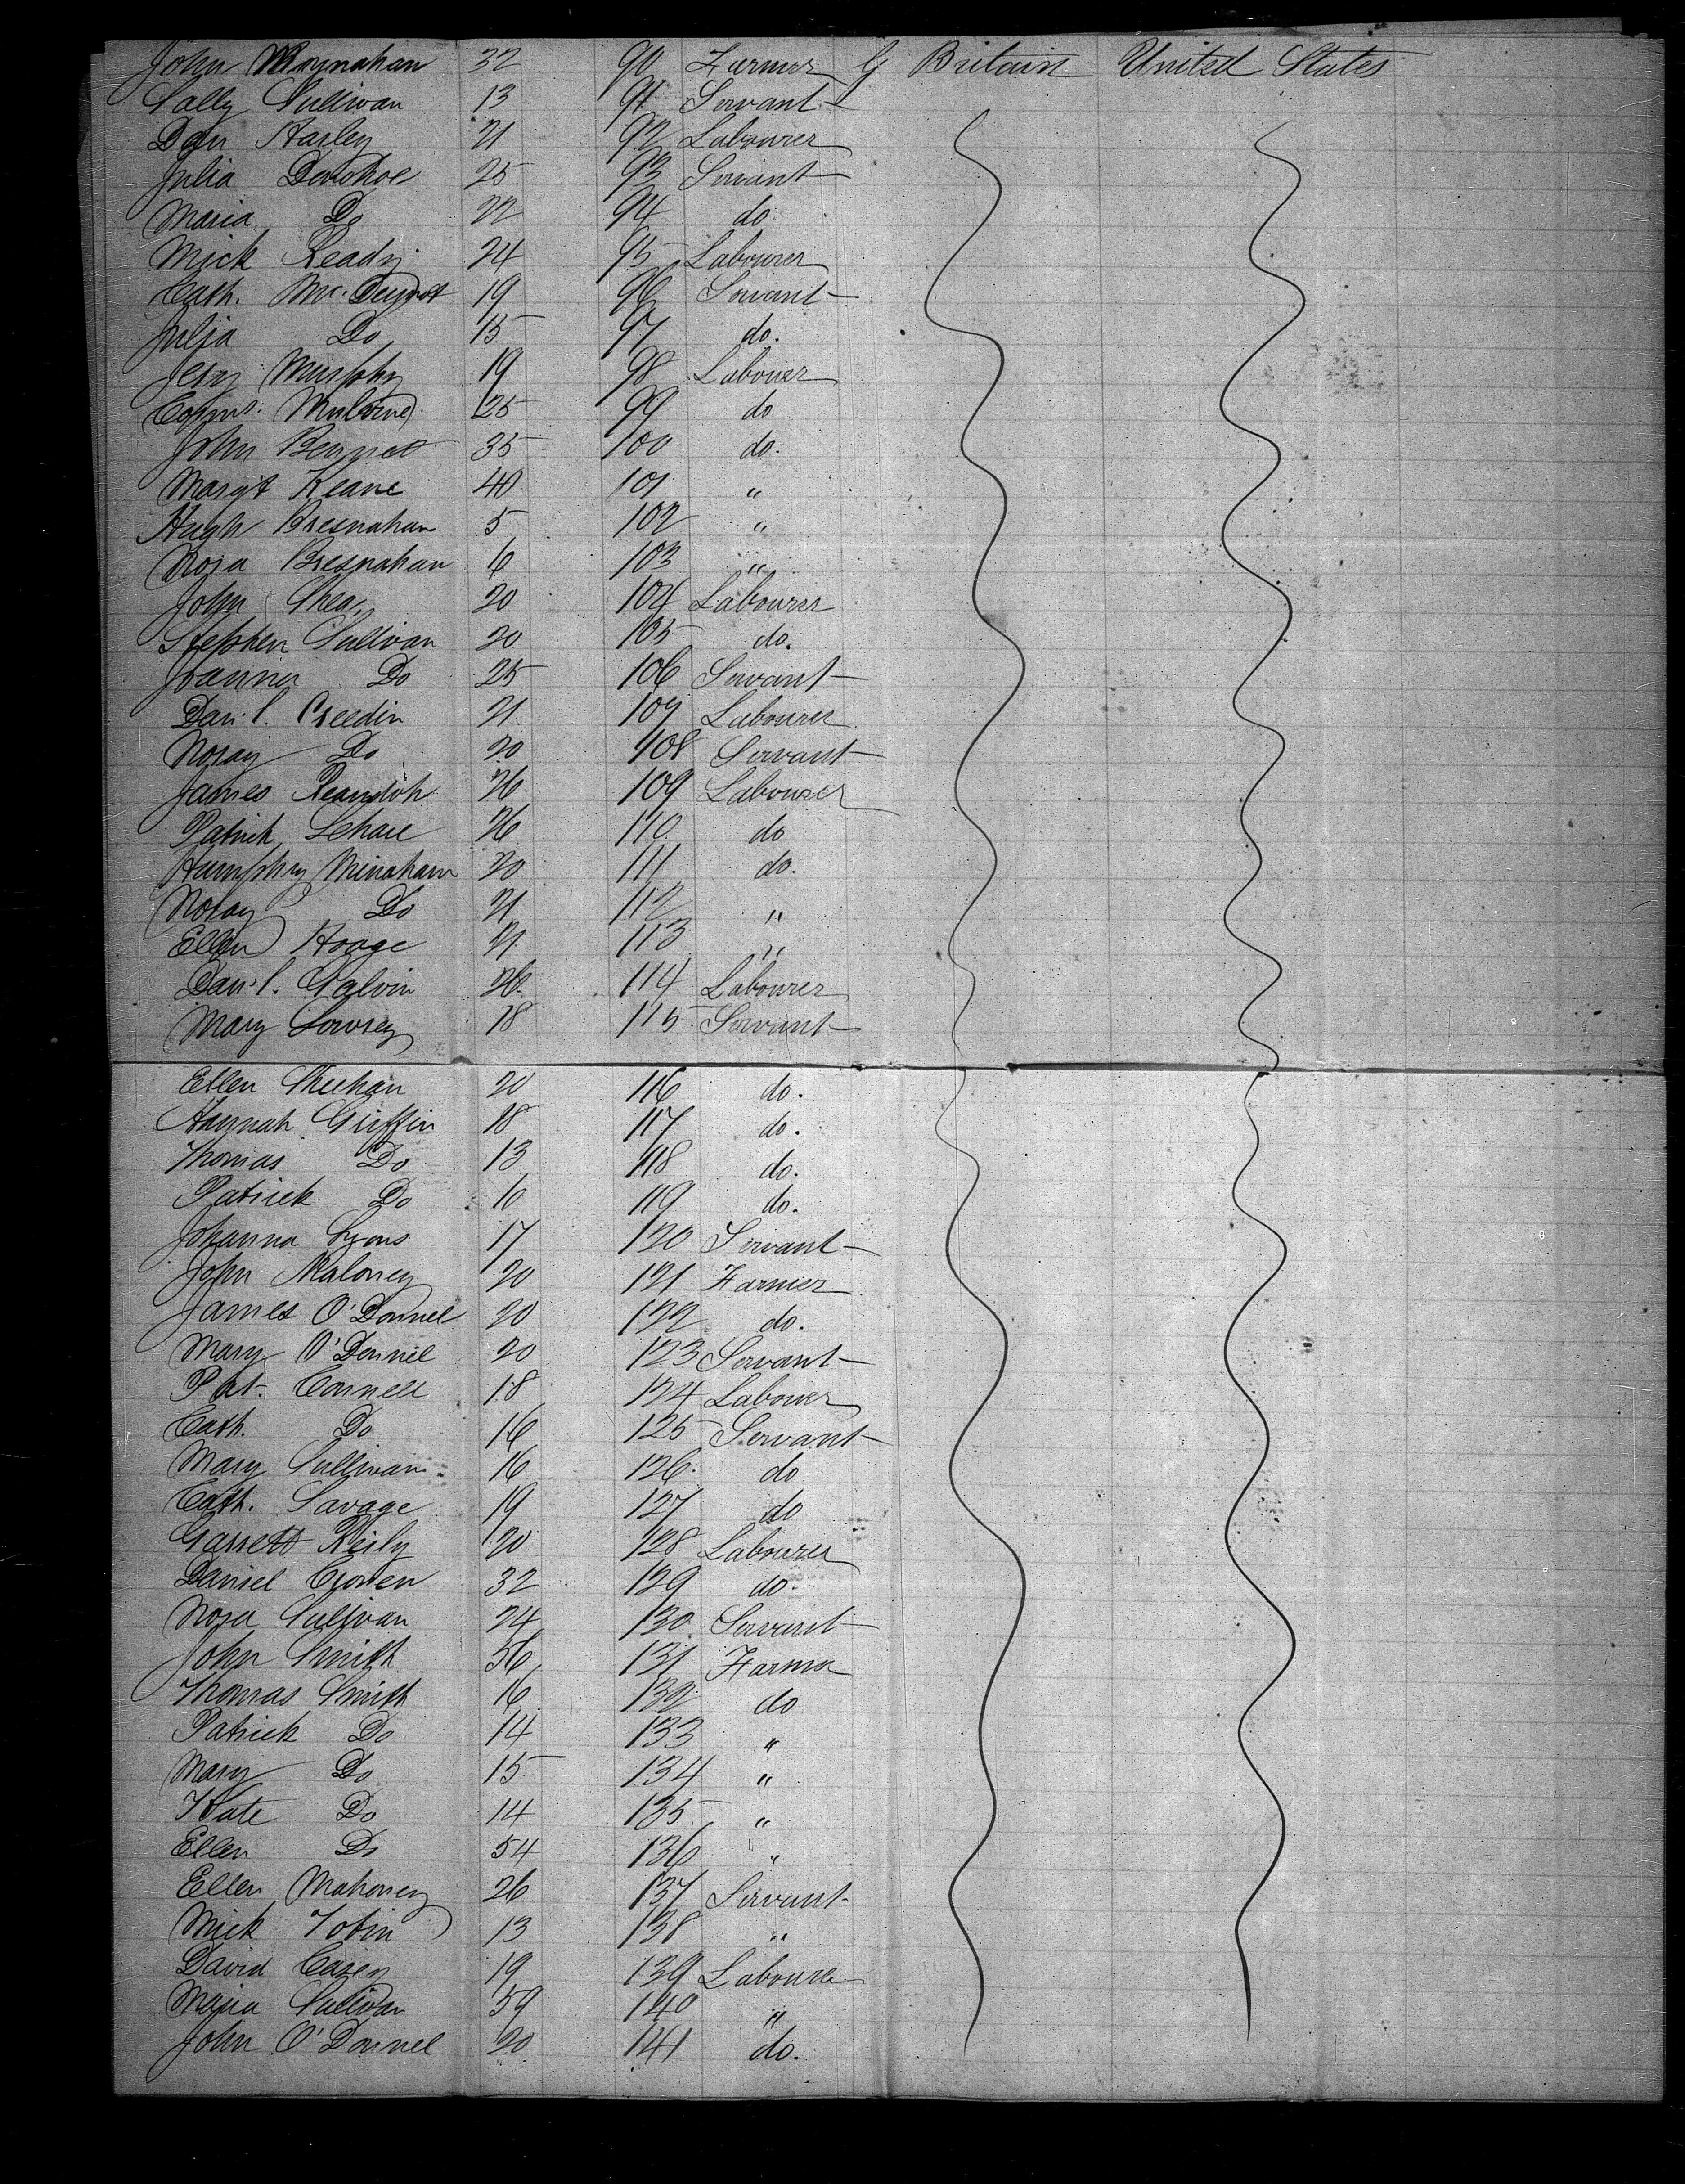 John Moynahan 32 90 Farmer G Britain United States
Sally Sullivan 13 91 Servant
Dan Harley 21 92 Labourer
Julia Donohoe 25 93 Servant
Maria Do 22 94 do
Mick Ready 24 95 Labourer
Cath. 19 96 Servant
Julia Do 15 97 do.
Jery Murphy 19 98 Labourer
25 99 do
John Bennet 35 100 do.
Margt Keane 40 101 "
Hugh Bresnahan 5 102 "
Nora Bresnahan 6 103 "
John Shea 20 104 Labourer
Stephen Sullivan 20 105 do.
Joanna Do 25 106 Servant
Danl. Creedin 21 107 Labourer
Noray Do 20 108 Servant
James 26 109 Labourer
Patrick Lehane 26 110 do
Humphry Minahan 20 111 do.
Noray Do 21 112 "
Ellen 21 113 "
Danl. Galvin 26 114 Labourer
Mary 18 115 Servant
Ellen Sheehan 20 116 do.
Hannah Griffin 18 117 do.
Thomas Do 13 118 do.
Patrick Do 119 do.
Johanna Lyons 17 120 Servant
John Maloney 20 121 Farmer
James O'Donnel 20 122 do.
Mary O'Donnel 20 123 Servant
Pat. Connell 18 124 Labourer
Cath. Do 16 125 Servant
Mary Sullivan 16 126 do
Cath. Savage 19 127 do
Garrett Reily 20 128 Labourer
Daniel Cronen 32 129 do.
Nora Sullivan 24 130 Servant
John Smith 56 131 Farmer
Thomas Smith 16 132 do
Patrick Do 14 133 "
Mary Do 15 134 "
Kate Do 14 135 "
Ellen Do 54 136 "
Ellen Mahoney 26 137 Servant
Mick Tobin 13 138 "
David Casey 19 139 Labourer
Maria Sullivan 59 140 "
John O'Donnel 20 141 do.